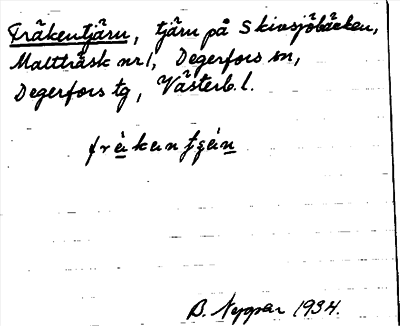 Fräkentjärn, tjärn på Skivsjöbäcken,
Maltträsk nr 1, Degerfors sn,
Degerfors tg, Västerb. l.
frèkentȿén
B. Neppar 1934.